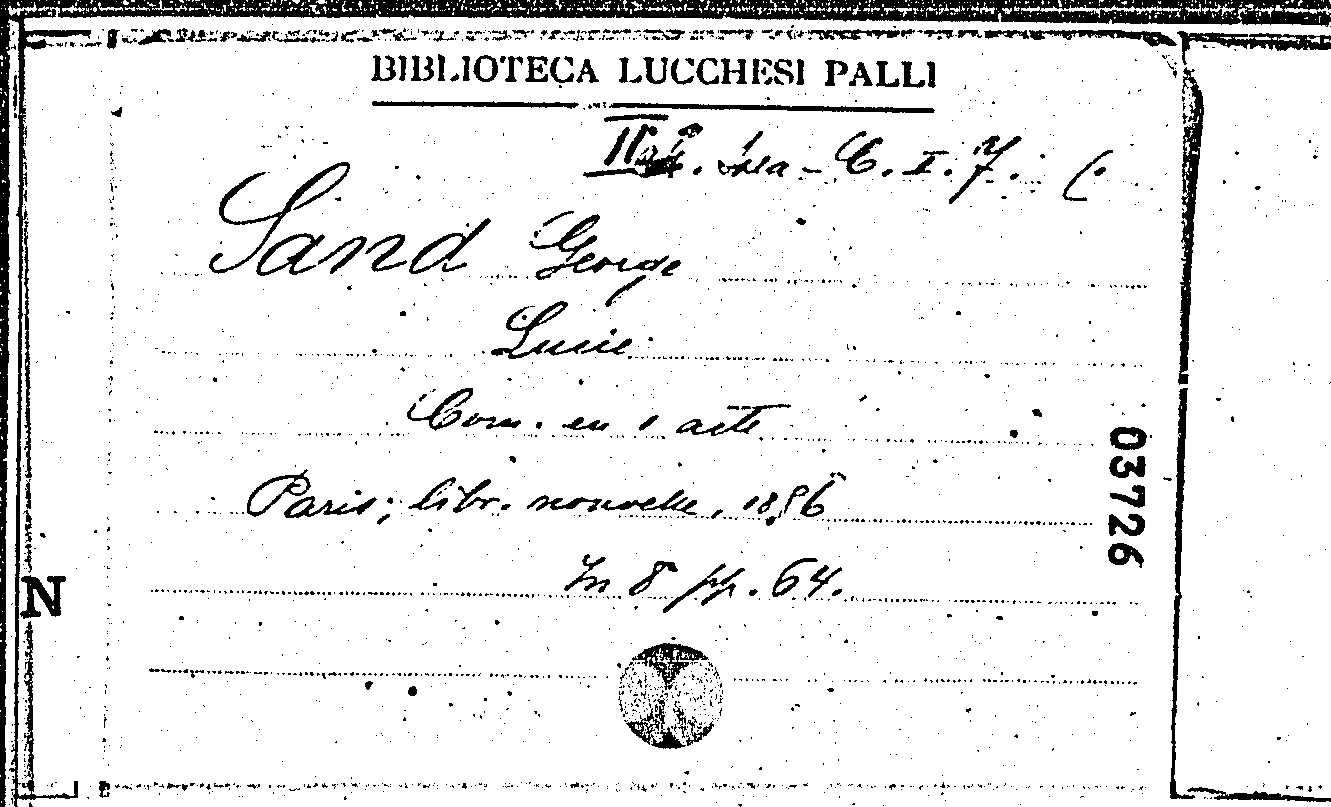 BIBLIOTECA LUCCHESI PALLI
C. I. 7.
Sand George
Lucie
Com. en 1 acte
Paris; libr. nouvelle, 1856
In 8° pp. 64.
03726
N